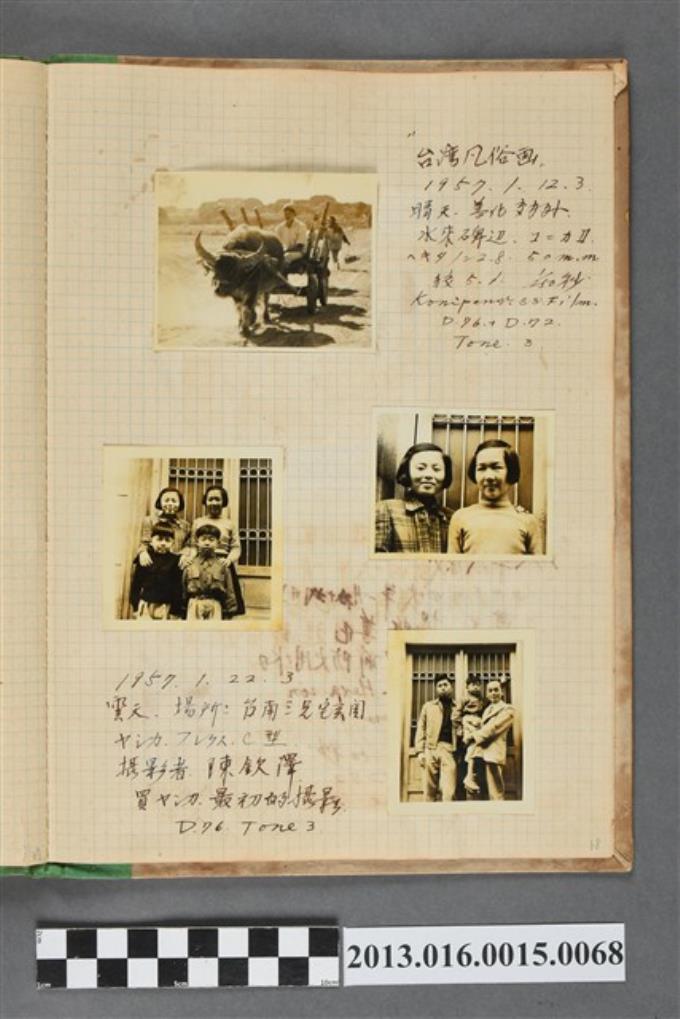 台湾凡俗画.
1957. 1. 12. 3.
晴天. 善化郊外.
水來碑辺. コニカⅡ.
ヘキサノン2.8. 50m.m
絞 5.1. 1/250秒.
Konipan S.S. Film.
D.96. D.72.
Tone. 3
1957. 1. 22. 3
雲天. 場所: 台南三兄宅玄関
ヤシカ. フレクス. C型
攝影者. 陳欽澤
買ヤシカ. 最初的攝影.
D.76. Tone 3
18
2013.016.0015.0068
1cm
5cm
10cm